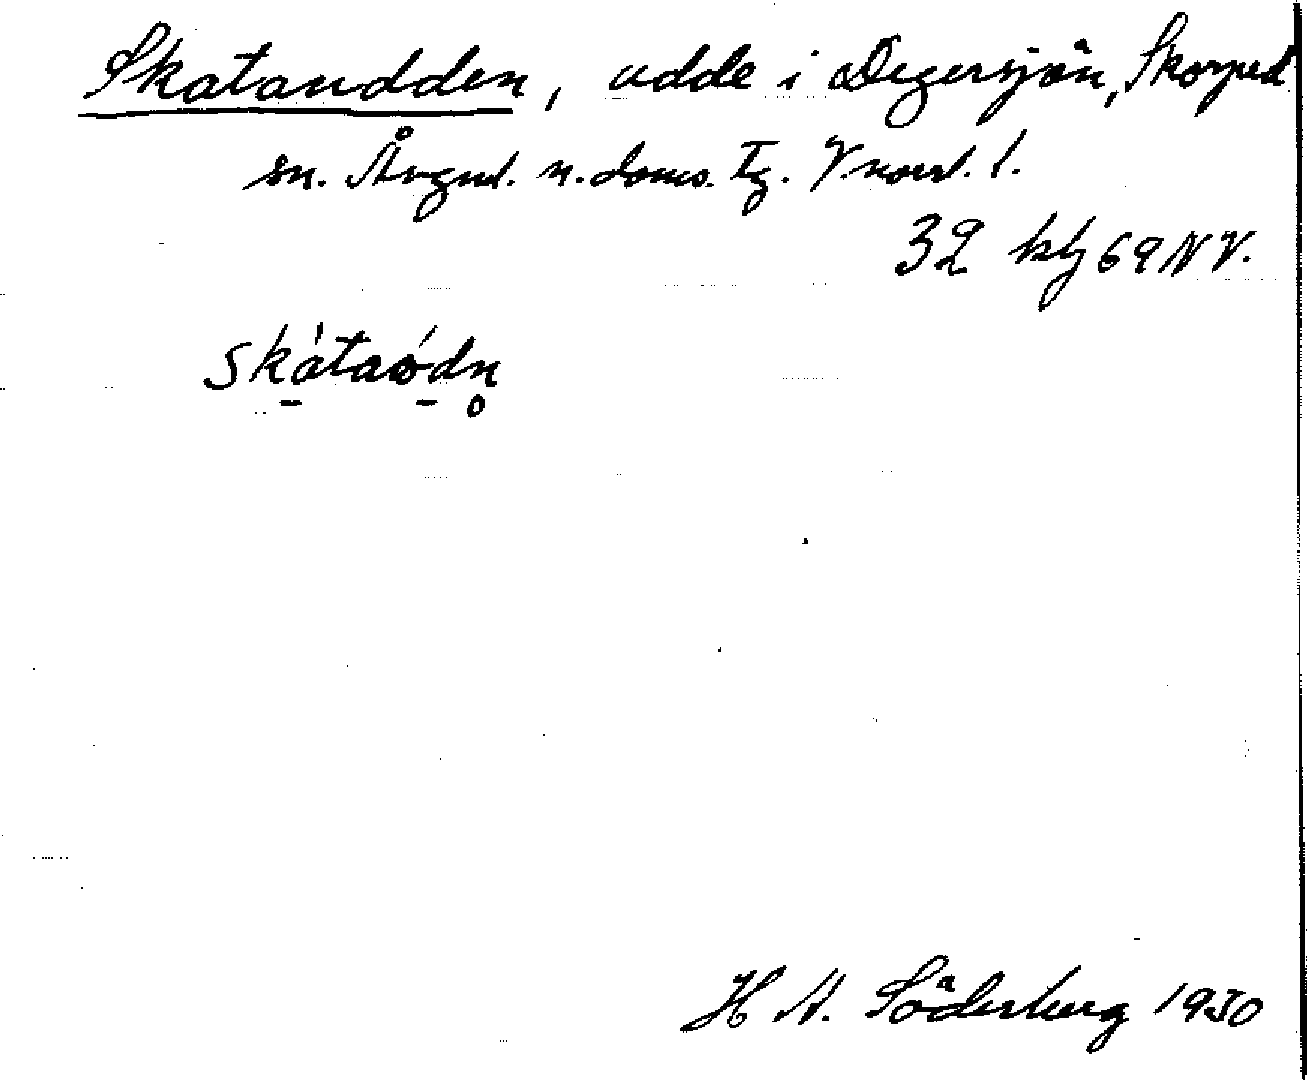 Skataudden, udde i Degersjön, Skorped
sn. Ångml. n. doms. Tg. V.norrl. l.
32 blz 69 NV.
Skátaódn̥
H A. Söderberg 1930